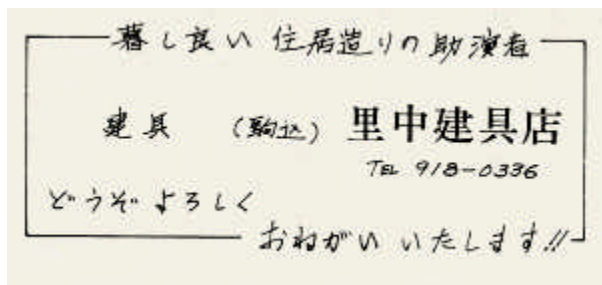 暮し良い住居造りの助演者
建具 (駒込) 里中建具店
TEL 918-0336
どうぞよろしく
おねがいいたします!!